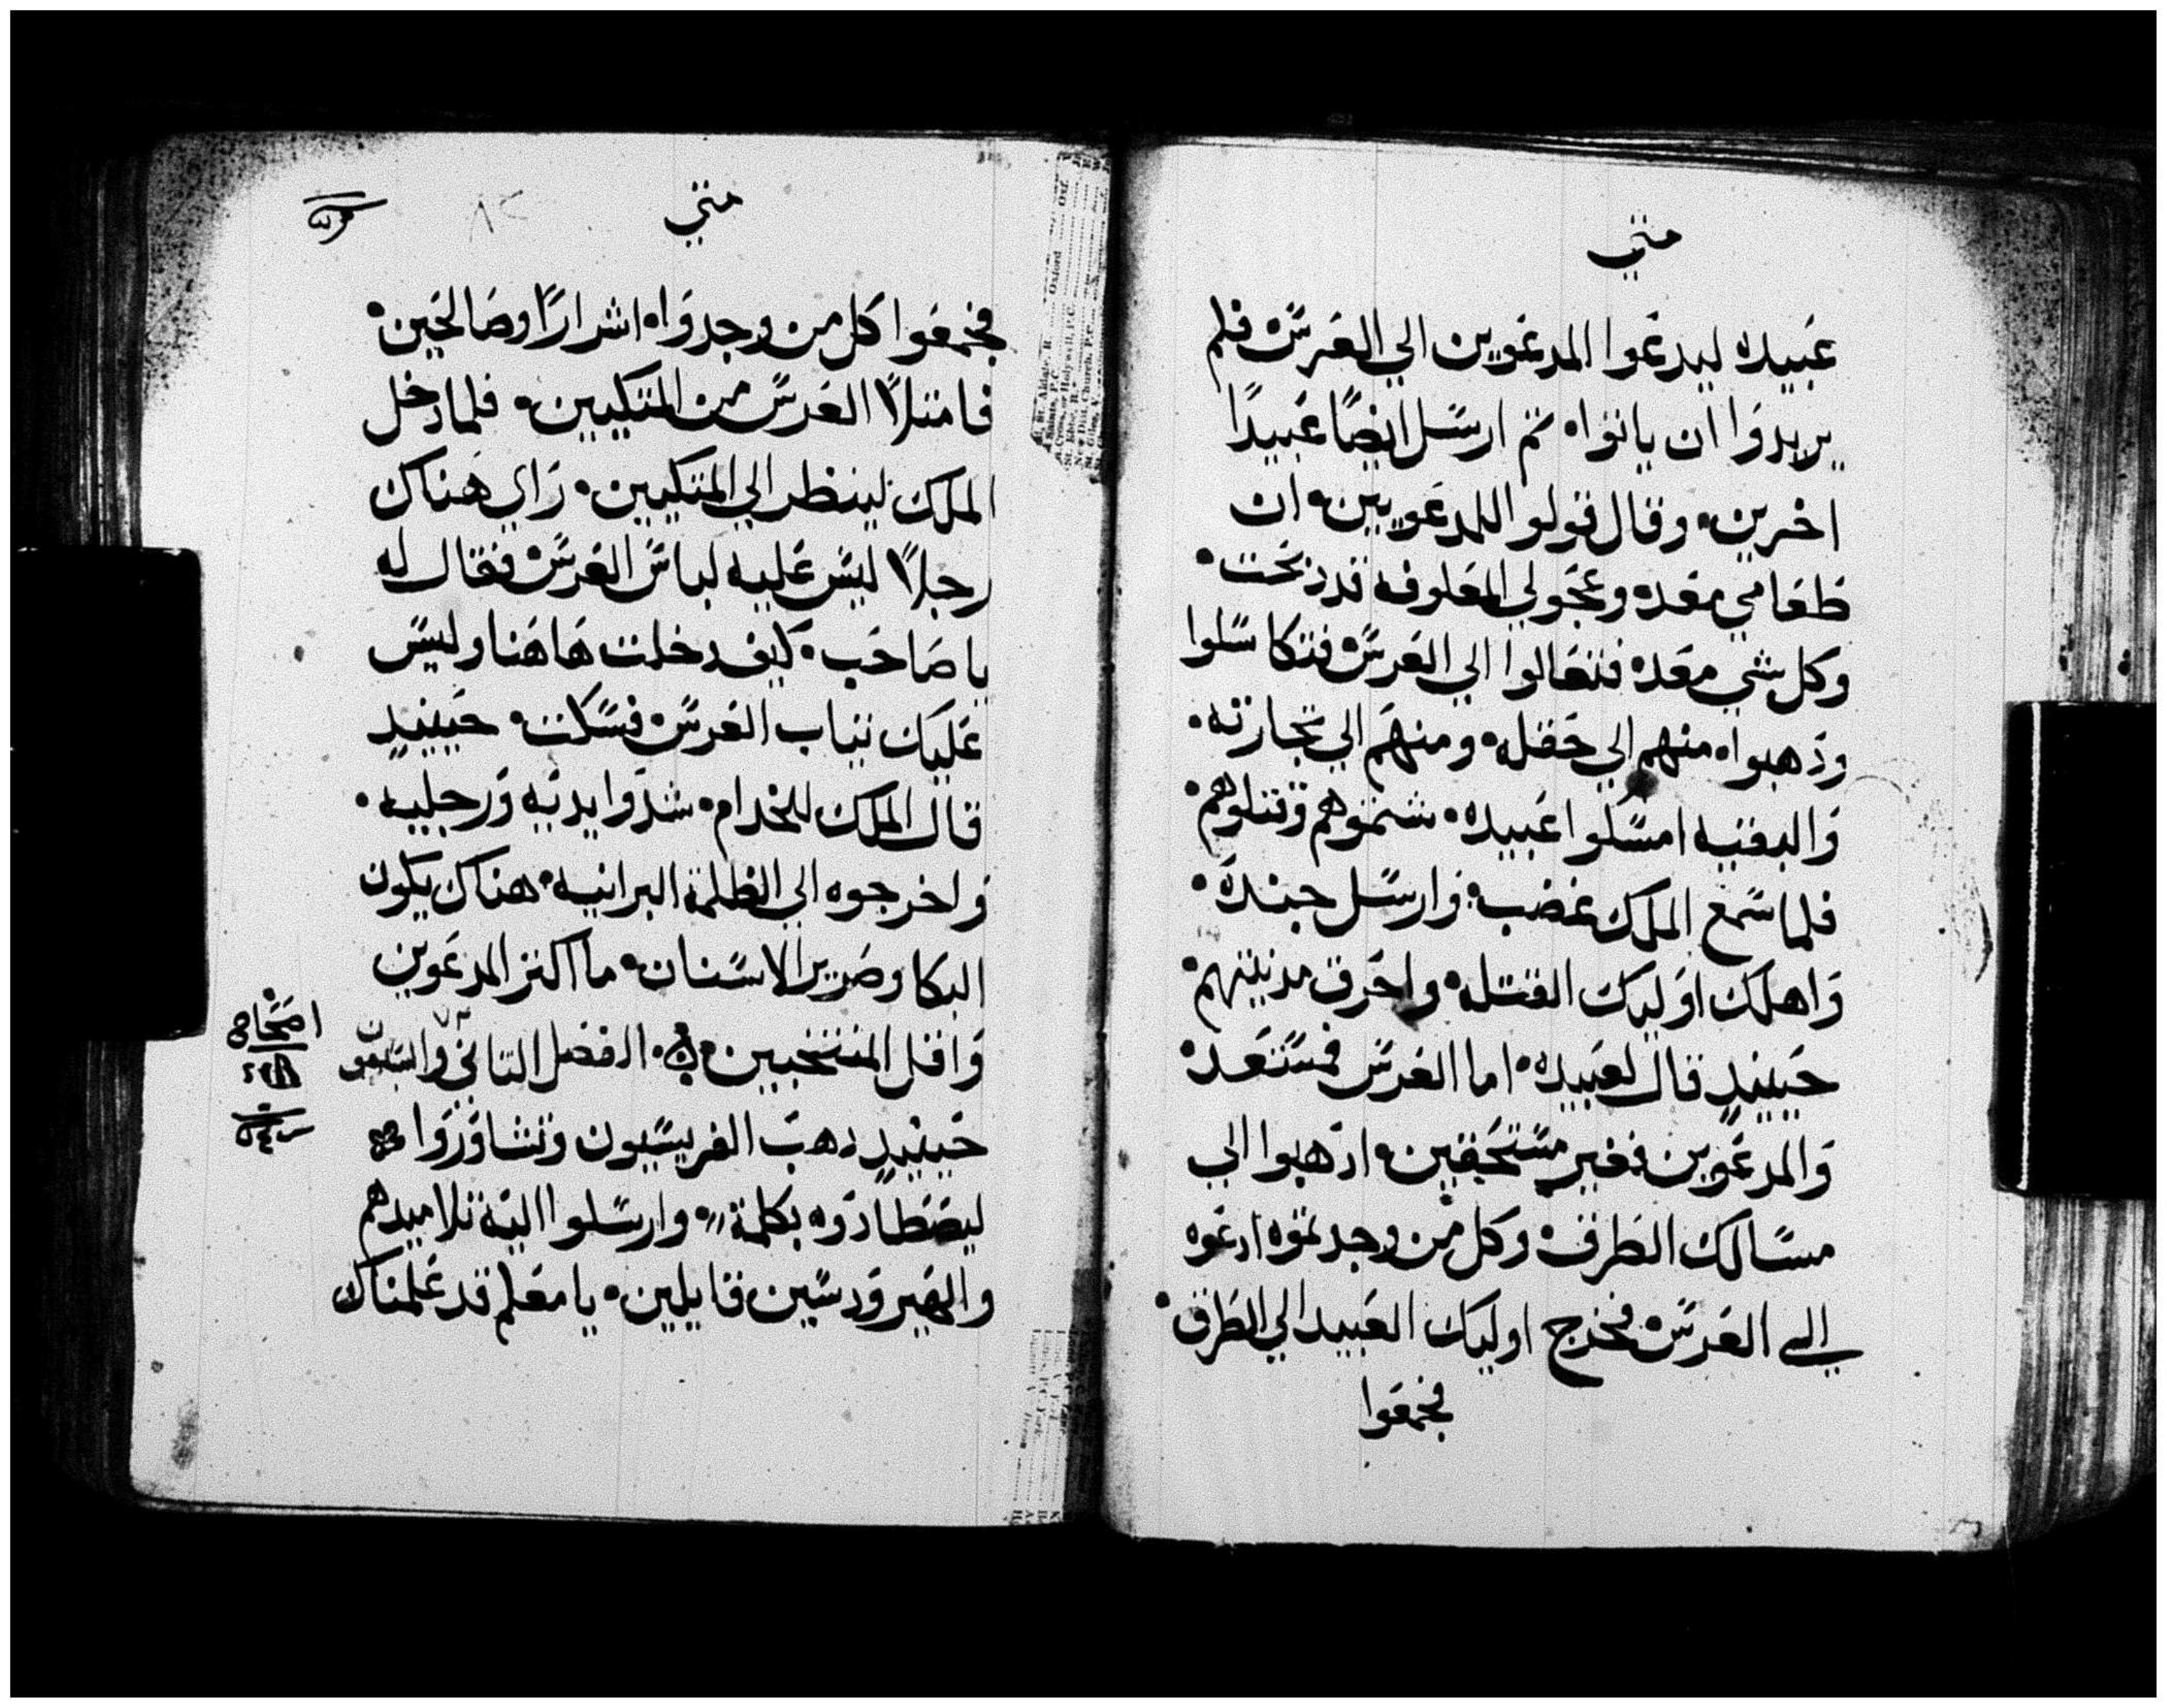 متي
عبيده ليدعوا المدعوين الي العرس فلم
يريدوا ان ياتوا ثم ارسل ايضا عبيدا
اخرين وقال قولوا للمدعويين ان
طعامي معده وعجولي المعلوفه قد ذبحت
وكل شي معده فتعالوا الي العرس فتكاسلوا
وذهبوا منهم الي حقله ومنهم الي تجارته
والبقيه امسكوا عبيده شتموهم وقتلوهم
فلما سمع الملك غضب وارسل جنده
واهلك اوليك القتله واحرق مدينتهم
حينيذ قال لعبيده اما العرس فمستعد
والمدعوين فغير مستحقين اذهبوا الي
مسالك الطرق وكل من وجدتموه ادعوه
الي العرس فخرج اوليك العبيد الي الطرق
فجمعوا
متي
فجمعوا كل من وجدوا اشرارا وصالحين
فامتلا العرس من المتكيين فلما دخل
الملك لينظر الي المتكيين راي هناك
رجلا ليس عليه لباس العرس فقال له
يا صاحب كيف دخلت هاهنا وليس
عليك ثياب العرس فسكت حينيذ
قال الملك للخدام شدوا يديه ورجليه
واخرجوه الي الظلمة البرانيه هناك يكون
البكا وصرير الاسنان ما اكثر المدعوين
واقل المنتخبين الفصل الثاني والسبعون
اصحاح
حينيذ ذهب الفريسيون وتشاوروا
ليصطادوه بكلمة وارسلوا اليه تلاميدهم
والهيرودسين قايلين يا معلم قد علمناك